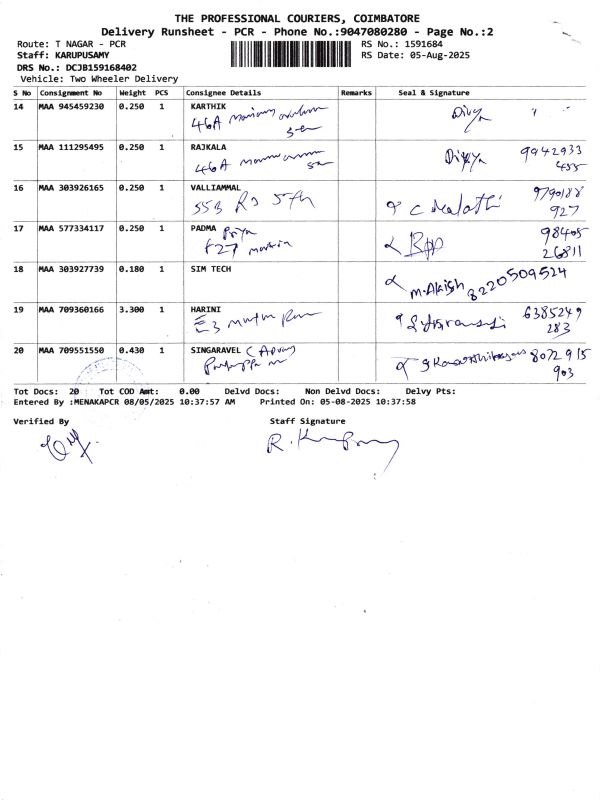 THE PROFESSIONAL COURIERS, COIMBATORE
Delivery Runsheet - PCR - Phone No.:9047080280 - Page No.:2
Route: T NAGAR - PCR RS No.: 1591684
Staff: KARUPUSAMY RS Date: 05-Aug-2025
DRS No.: DCJB159168402
Vehicle: Two Wheeler Delivery
S No Consignment No Weight PCS Consignee Details Remarks Seal & Signature
14 MAA 945459230 0.250 1 KARTHIK
46A Divya
15 MAA 111295495 0.250 1 RAJKALA
46A Divya 9942933
455
16 MAA 303926165 0.250 1 VALLIAMMAL
55B R3 5th C Malathi 9790188
927
17 MAA 577334117 0.250 1 PADMA Priya
F27 98405
26811
18 MAA 303927739 0.180 1 SIM TECH
M.Akish 8220509524
19 MAA 709360166 3.300 1 HARINI
E3 6385249
283
20 MAA 709551550 0.430 1 SINGARAVEL
8072915
903
Tot Docs: 20 Tot COD Amt: 0.00 Delvd Docs: Non Delvd Docs: Delvy Pts:
Entered By :MENAKAPCR 08/05/2025 10:37:57 AM Printed On: 05-08-2025 10:37:58
Verified By Staff Signature